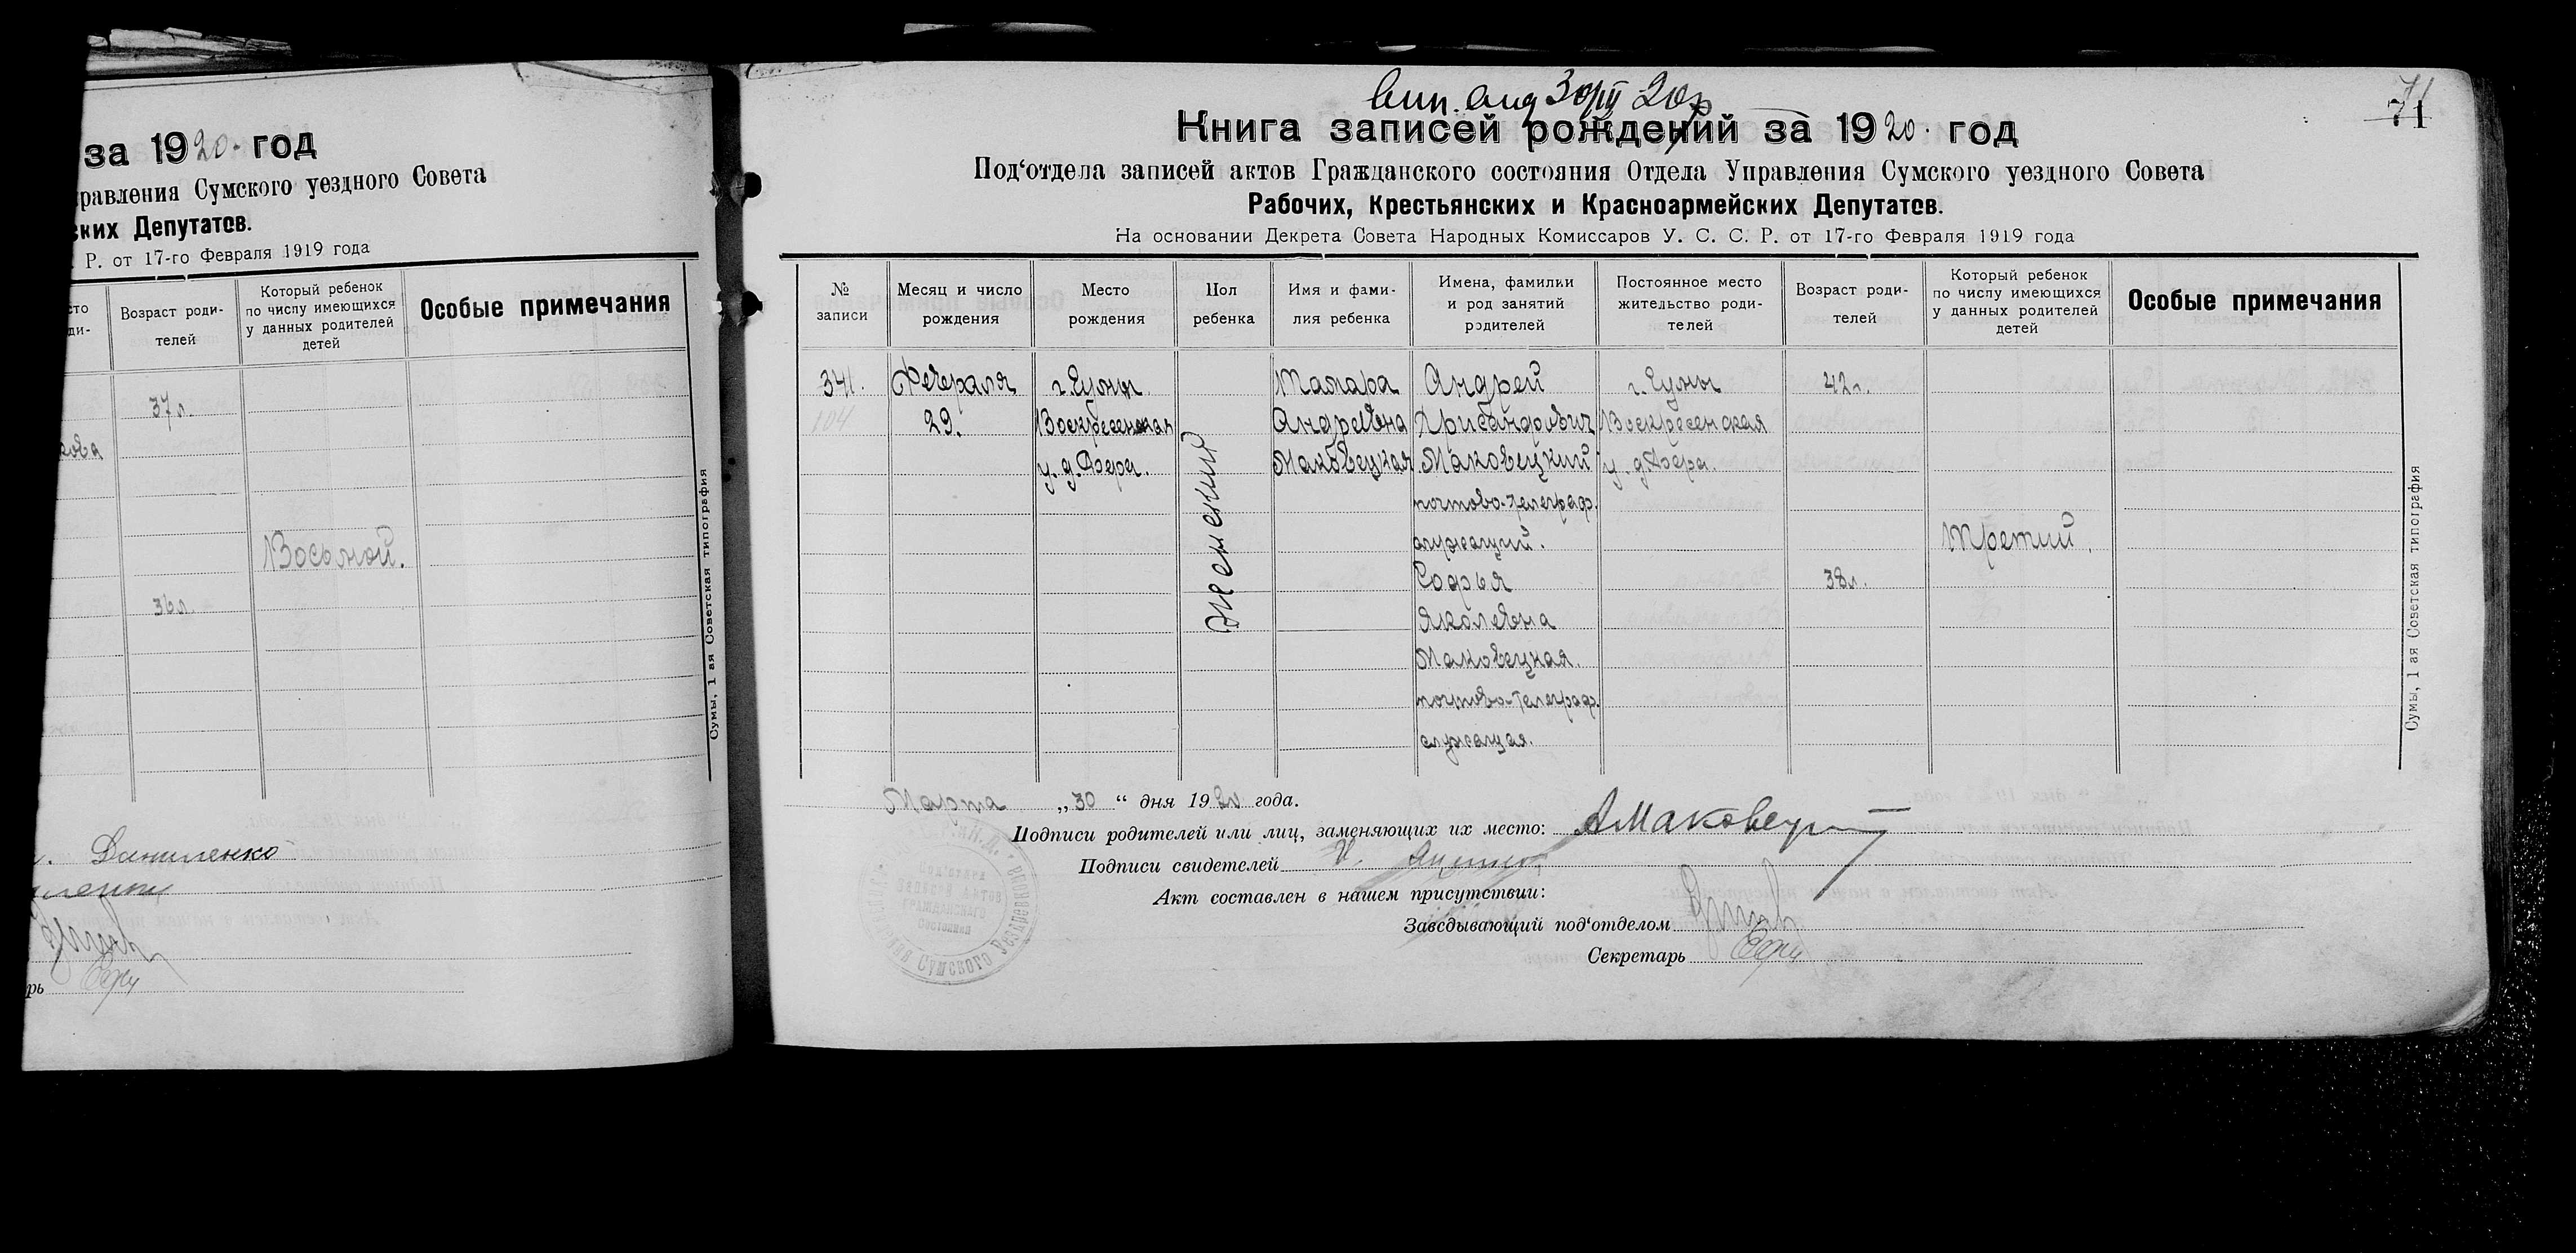 за 1920 год
равления Сумского уездного Совета
ских Депутатов.
Р. от 17-го Февраля 1919 года
Возраст роди-
телей
Который ребенок
по числу имеющихся
у данных родителей
детей
Особые примечания
37 л.
кова
Восьмой.
36 л.
Сумы, 1 ая Советская типография
Даниленко
рь
71
71
Книга записей рождений за 1920 год
Под‘отдела записей актов Гражданского состояния Отдела Управления Сумского уездного Совета
Рабочих, Крестьянских и Красноармейских Депутатов.
На основании Декрета Совета Народных Комиссаров У. С. С. Р. от 17-го Февраля 1919 года
№
записи
Месяц и число
рождения
Место
рождения
Пол
ребенка
Имя и фами-
лия ребенка
Имена, фамилии
и род занятий
родителей
Постоянное место
жительство роди-
телей
Возраст роди-
телей
Который ребенок
по числу имеющихся
у данных родителей
детей
Особые примечания
341.
104
Февраля
29.
г. Сумы
Воскресенская
у. д. Фера.
женский
Тамара
Андреевна
Маковецкая
Андрей
Хрисанфович
Маковецкий
почтово-телеграф.
служащий.
Софья
Яколевна
Маковецкая.
почтово-телеграф.
служащая.
г. Сумы
Воскресенская
у. д. Фера.
42 г.
38 л.
Третий.
Марта „30“ дня 1920 года.
Подписи родителей или лиц, заменяющих их место: АМаковец
Подписи свидетелей
Акт составлен в нашем присутствии:
Заведывающий под‘отделом
Секретарь
Сумы, 1 ая Советская типография